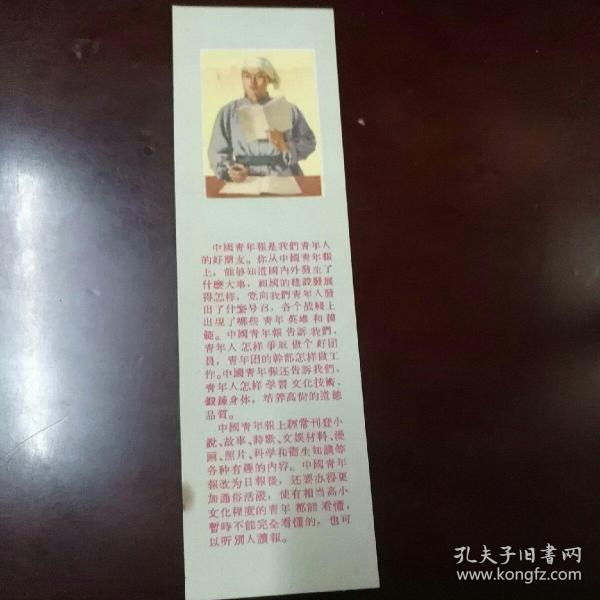 中國青年報是我們青年人
的好朋友。你从中國青年報
上，能够知道國內外發生了
什麽大事，祖國的建設發展
得怎样，党向我們青年人發
出了什麽号召，各个战綫上
出現了哪些青年英雄和模
範。中國青年報告訴我們，
青年人怎样爭取做个好团
員，青年团的幹部怎样做工
作。中國青年報还告訴我們，
青年人怎样學習文化技術，
鍛鍊身体，培养高尙的道德
品質。
中國青年報上經常刊登小
說、故事、詩歌、文娱材料、漫
画、照片、科學和衞生知識等
各种有趣的內容。中國青年
報改为日報後，还要办得更
加通俗活潑，使有相当高小
文化程度的青年都能看懂，
暫時不能完全看懂的，也可
以听别人讀報。
孔夫子旧書网
www.kongfz.com